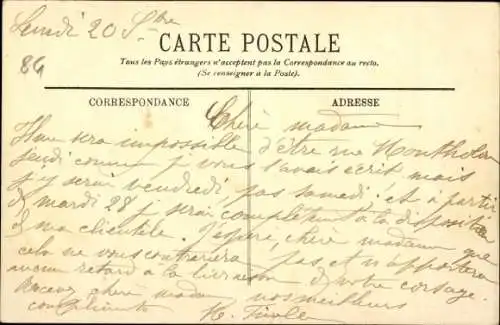 Lundi 20 Sbre
86
CARTE POSTALE
Tous les Pays étrangers n'acceptent pas la Correspondance au recto.
(Se renseigner à la Poste).
CORRESPONDANCE
ADRESSE
Chère madame
Il me sera impossible d'être rue Montholon
jeudi comme je vous l'avais écrit mais
j'y serai vendredi, pas samedi, et à partir
de mardi 28 je serai complètement à la disposition
de ma clientèle. J'espère, chère madame que
cela ne vous contrariera pas et n'apportera
aucun retard à la livraison de votre corsage.
Recevez, chère madame nos meilleurs
compliments